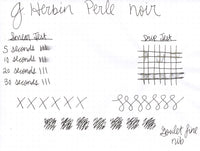 J Herbin Perle noir
Smear Test
Drip Test
5 seconds
10 seconds
20 seconds
30 seconds
XXXXXXX
Goulet fine
nib